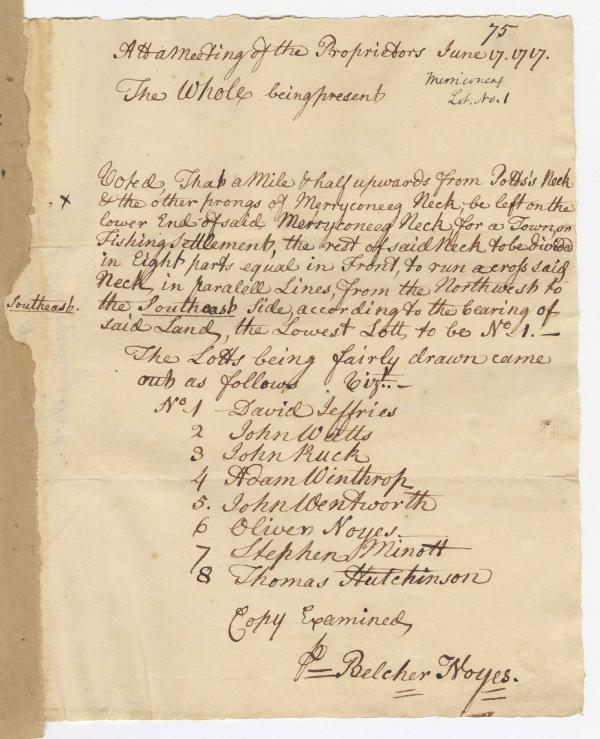 75
Att a Meeting of the Proprietors June 17. 1717.
Merriconeag
Lot. No. 1
The Whole being present
x
Voted, That a Mile & half upwards from Potts's Neck
& the other prongs of Merryconeeg Neck, be left on the
lower End of said Merryconeeg Neck for a Town, or
Fishing Settlement, the rest of said Neck to be Divided
in Eight parts equal in Front, to run across said
Neck in paralell Lines, from the Northwest to
Southeast.
the Southeast Side, according to the bearing of
said Land, the Lowest Lott to be No 1. —
The Lotts being fairly drawn came
out as follows Vizt. —
No 1 - David Jeffries
2 John Watts
3 John Ruck
4 Adam Winthrop
5. John Wentworth
6 Oliver Noyes
7 Stephen Minott
8 Thomas Hutchinson
Copy Examined
P Belcher Noyes.